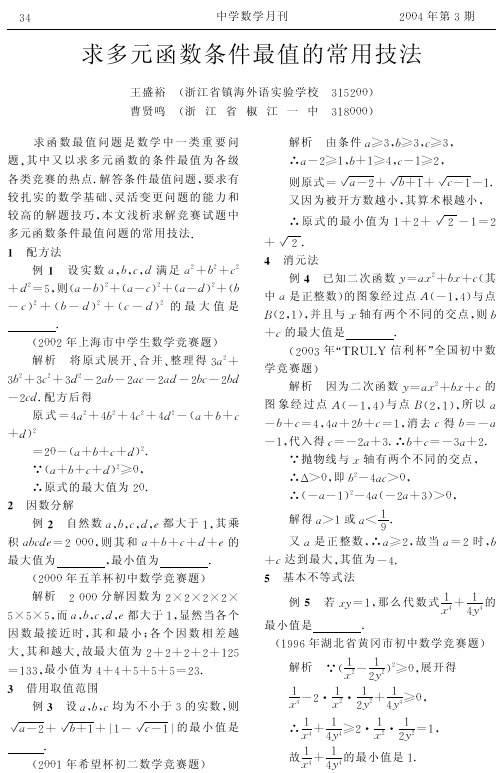 34 中学数学月刊 2004 年第 3 期
求多元函数条件最值的常用技法
王盛裕 (浙江省镇海外语实验学校 315200)
曹贤鸣 (浙 江 省 椒 江 一 中 318000)
求函数最值问题是数学中一类重要问
题,其中又以求多元函数的条件最值为各级
各类竞赛的热点.解答条件最值问题,要求有
较扎实的数学基础、灵活变更问题的能力和
较高的解题技巧,本文浅析求解竞赛试题中
多元函数条件最值问题的常用技法.
1 配方法
例 1 设实数 a,b,c,d 满足 a²+b²+c²
+d²=5,则(a-b)²+(a-c)²+(a-d)²+(b
-c)²+(b-d)²+(c-d)² 的最大值是
______.
(2002 年上海市中学生数学竞赛题)
解析 将原式展开、合并、整理得 3a²+
3b²+3c²+3d²-2ab-2ac-2ad-2bc-2bd
-2cd.配方后得
原式=4a²+4b²+4c²+4d²-(a+b+c
+d)²
=20-(a+b+c+d)².
∵(a+b+c+d)²≥0,
∴原式的最大值为 20.
2 因数分解
例 2 自然数 a,b,c,d,e 都大于 1,其乘
积 abcde=2 000,则其和 a+b+c+d+e 的
最大值为______,最小值为______.
(2000 年五羊杯初中数学竞赛题)
解析 2 000 分解因数为 2×2×2×2×
5×5×5,而 a,b,c,d,e 都大于 1,显然当各个
因数最接近时,其和最小;各个因数相差越
大,其和越大,故最大值为 2+2+2+2+125
=133,最小值为 4+4+5+5+5=23.
3 借用取值范围
例 3 设 a,b,c 均为不小于 3 的实数,则
√(a-2)+√(b+1)+|1-√(c-1)|的最小值是
______.
(2001 年希望杯初二数学竞赛题)
解析 由条件 a≥3,b≥3,c≥3,
∴a-2≥1,b+1≥4,c-1≥2,
则原式=√(a-2)+√(b+1)+√(c-1)-1.
又因为被开方数越小,其算术根越小,
∴原式的最小值为 1+2+√2-1=2
+√2.
4 消元法
例 4 已知二次函数 y=ax²+bx+c(其
中 a 是正整数)的图象经过点 A(-1,4)与点
B(2,1),并且与 x 轴有两个不同的交点,则 b
+c 的最大值是______.
(2003 年“TRULY 信利杯”全国初中数
学竞赛题)
解析 因为二次函数 y=ax²+bx+c 的
图象经过点 A(-1,4)与点 B(2,1),所以 a
-b+c=4,4a+2b+c=1,消去 c 得 b=-a
-1,代入得 c=-2a+3.∴b+c=-3a+2.
∵抛物线与 x 轴有两个不同的交点,
∴Δ>0,即 b²-4ac>0,
∴(-a-1)²-4a(-2a+3)>0,
解得 a>1 或 a<1/9.
又 a 是正整数,∴a≥2,故当 a=2 时,b
+c 达到最大,其值为-4.
5 基本不等式法
例 5 若 xy=1,那么代数式 1/x⁴+1/4y⁴ 的
最小值是______.
(1996 年湖北省黄冈市初中数学竞赛题)
解析 ∵(1/x²-1/2y²)²≥0,展开得
1/x⁴-2·1/x²·1/2y²+1/4y⁴≥0,
∴1/x⁴+1/4y⁴≥2·1/x²·1/2y²=1,
故 1/x⁴+1/4y⁴ 的最小值是 1.